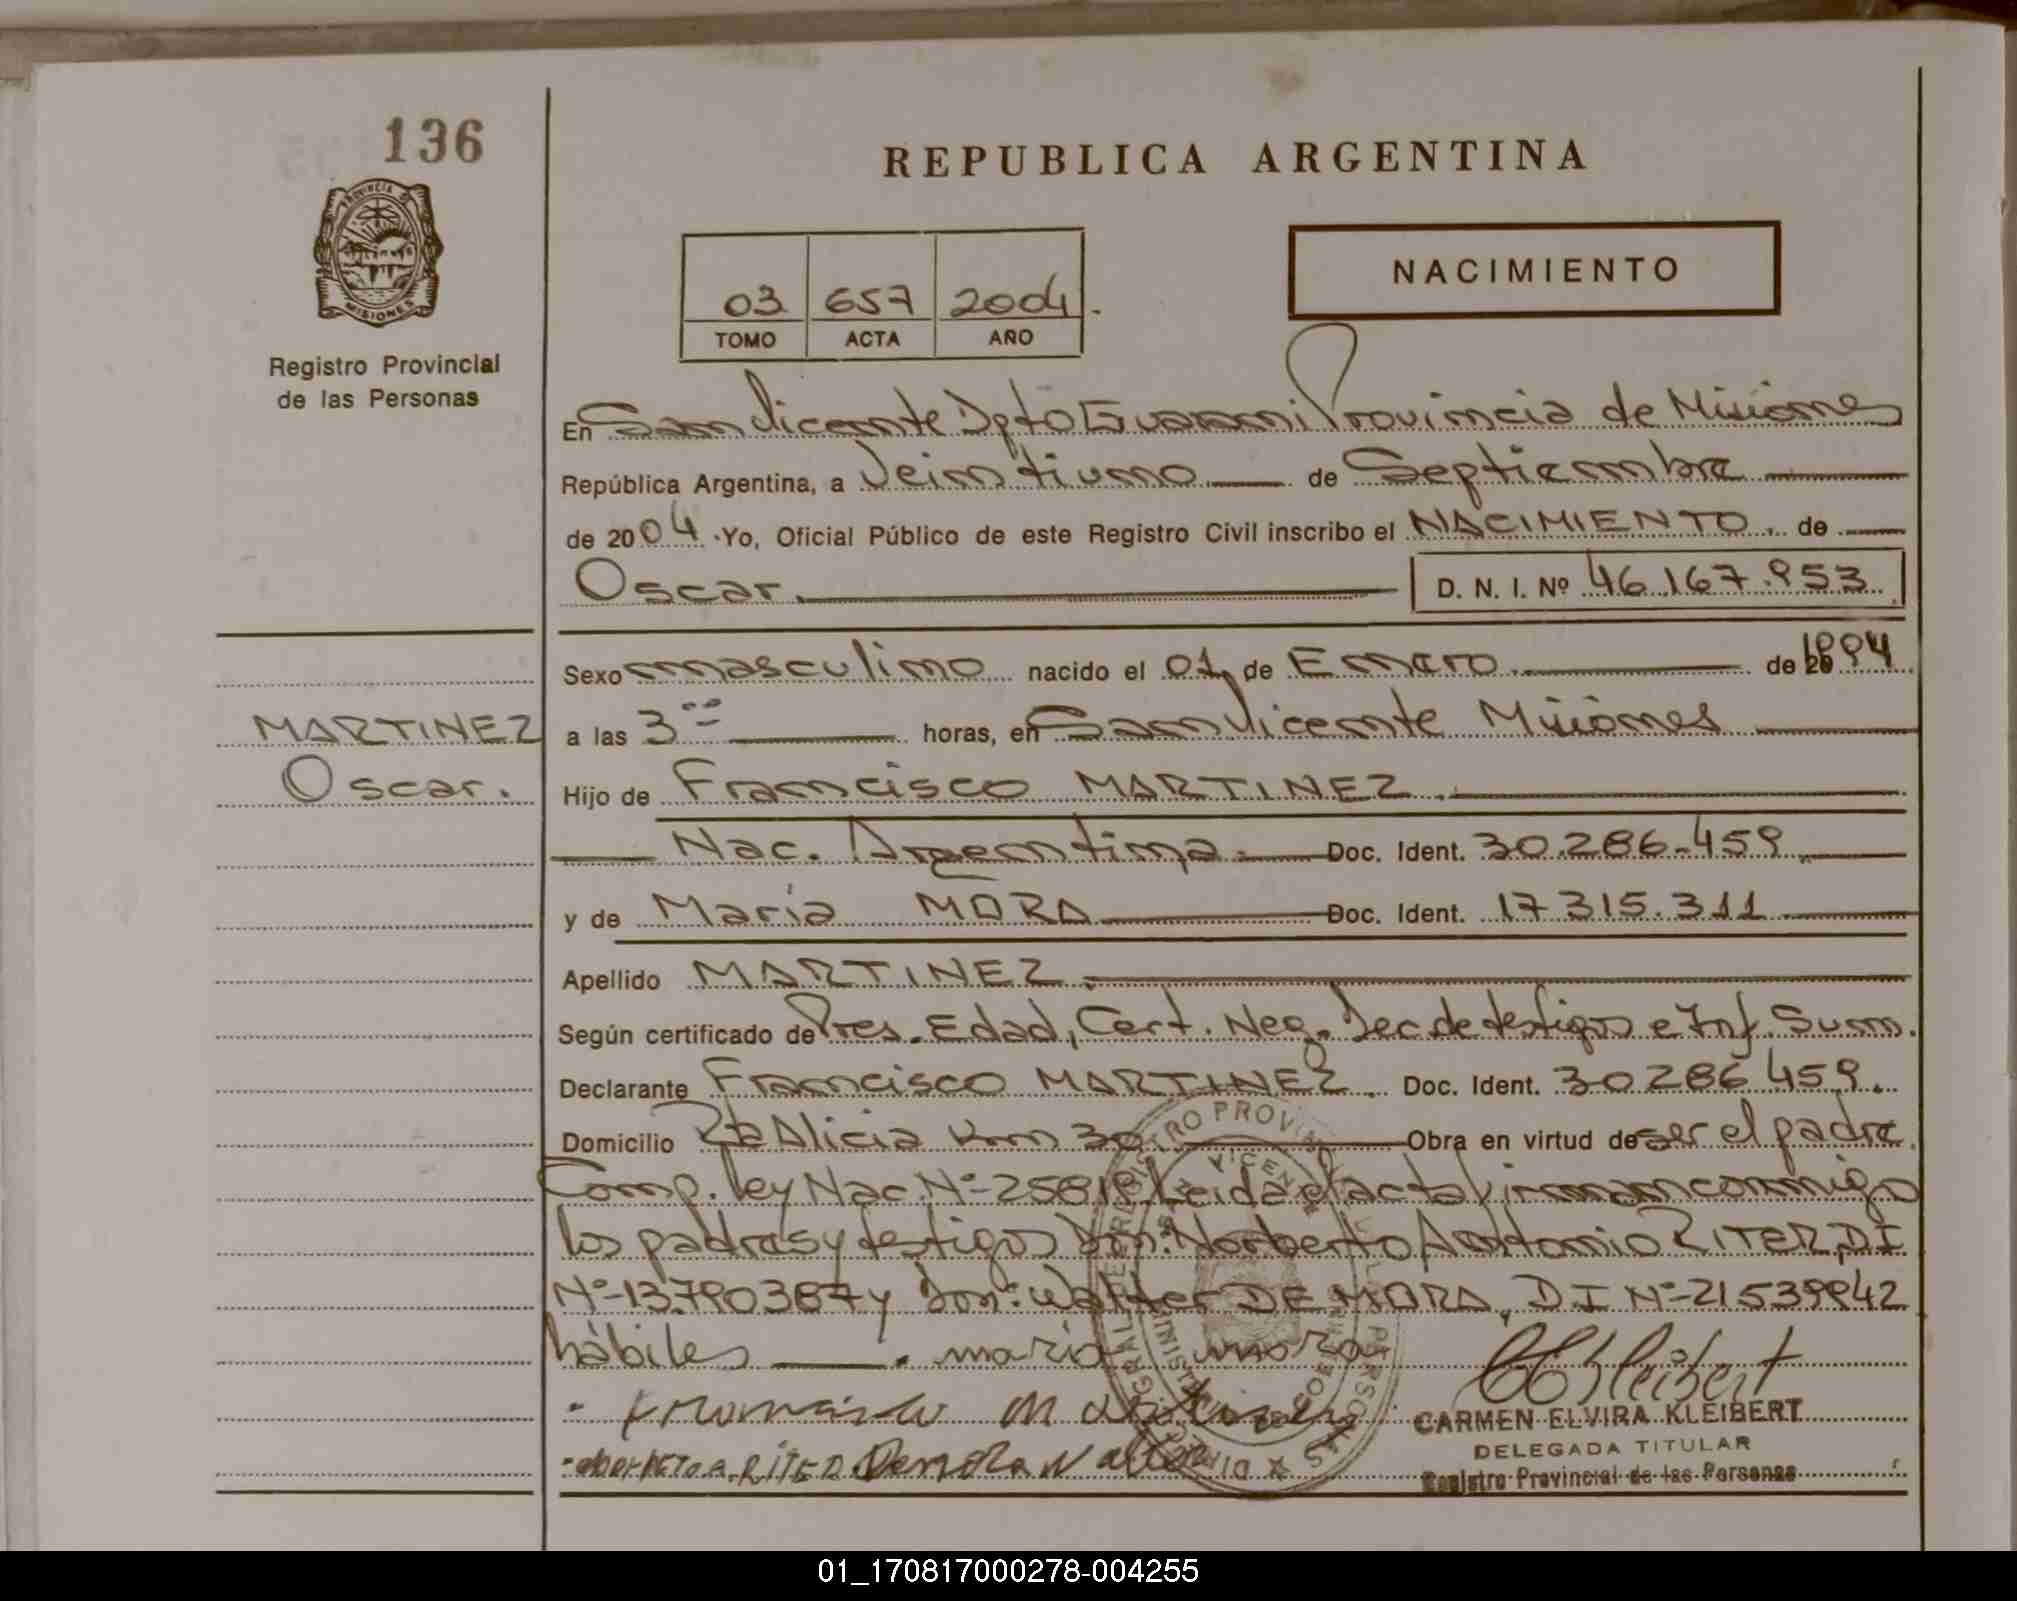 136
PROVINCIA DE
MISIONES
Registro Provincial
de las Personas
REPUBLICA ARGENTINA
03 657 2004.
TOMO ACTA AÑO
NACIMIENTO
En San Vicente Dpto Guarani Provincia de Misiones
República Argentina, a Veintiuno de Septiembre
de 2004. Yo, Oficial Público de este Registro Civil inscribo el NACIMIENTO de
Oscar. D. N. I. Nº 46.167.953
Sexo masculino nacido el 01 de Enero de 1994
MARTINEZ
Oscar.
a las 3 horas, en San Vicente Misiones
Hijo de Francisco MARTINEZ.
Nac. Argentina. Doc. Ident. 30.286.459
y de Maria MORA Doc. Ident. 17.315.311
Apellido MARTINEZ.
Según certificado de Pres. Edad, Cert. Neg. Dec de testigos e Inf. Sum.
Declarante Francisco MARTINEZ. Doc. Ident. 30286459.
Domicilio Alicia Km 30 Obra en virtud de ser el padre.
Comp. ley Nac. Nº-25818 Leida el acta firman conmigo
los padres y testigos Don: Norberto Antonio RITER, DI
Nº-13.790387 y Don: Walter DE MORA, DI Nº-21539942
hábiles . maria mora
CARMEN ELVIRA KLEIBERT
DELEGADA TITULAR
Registro Provincial de las Personas
01_170817000278-004255